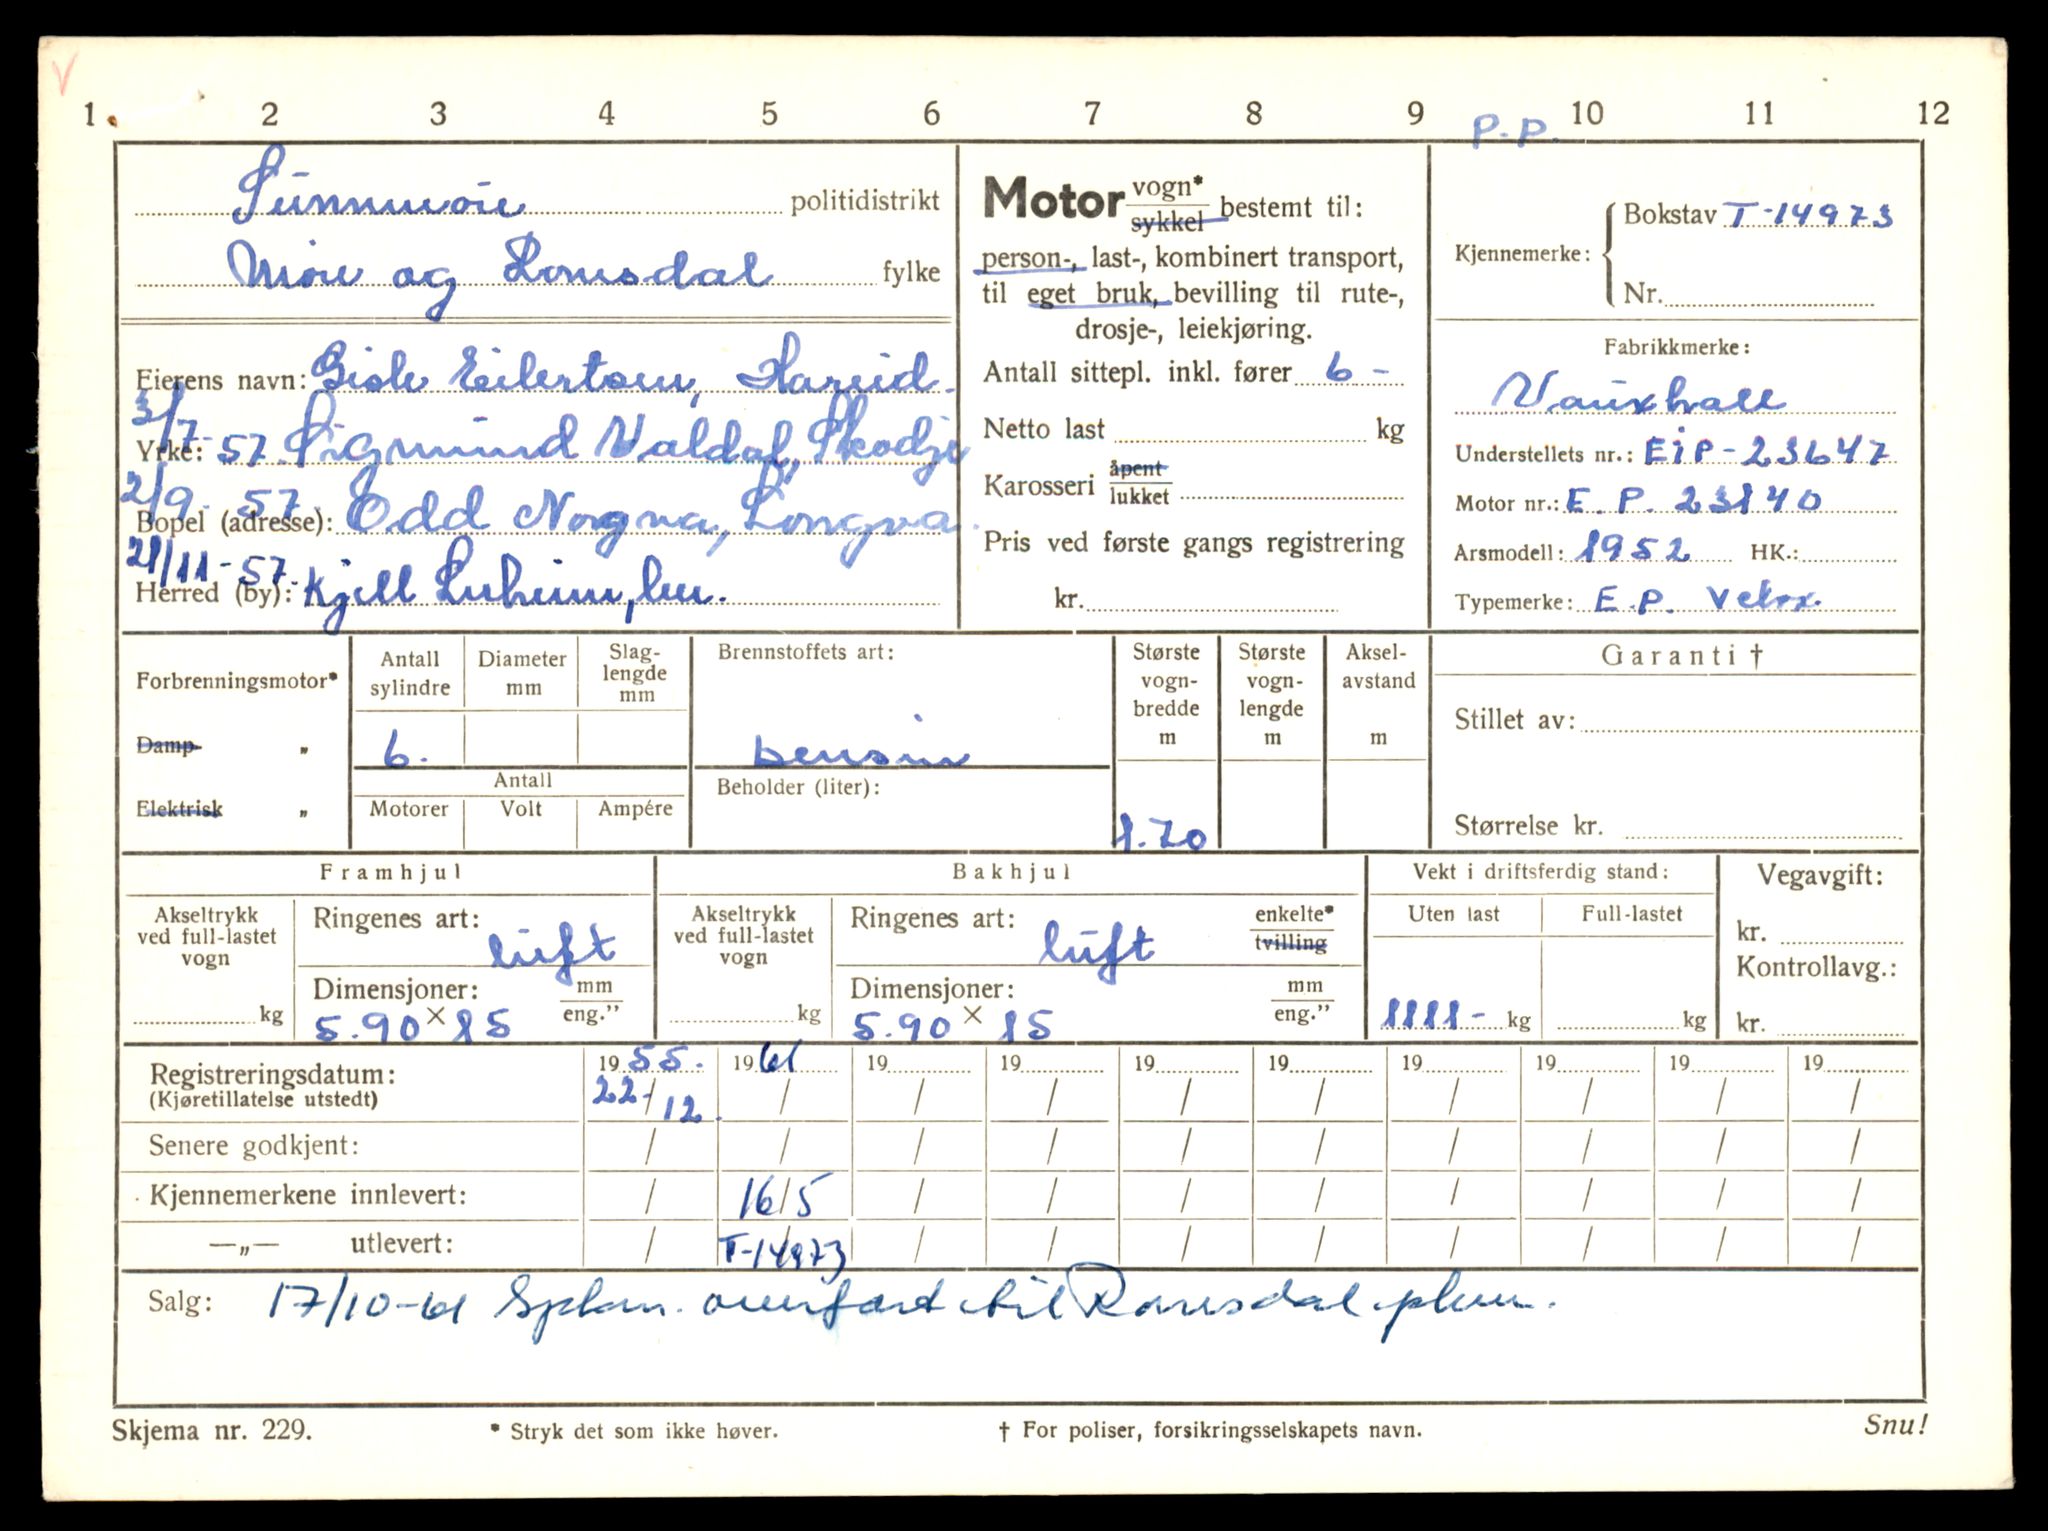 V
1 2 3 4 5 6 7 8 9 10 11 12
P.P.
Sunnmøre politidistrikt
Møre og Romsdal fylke
Eierens navn: Gisle Eilertsen, Hareid.
3/7-57 Yrke: Sigmund Valdal, Skodje
2/9-57 Bopel (adresse): Odd Norgva, Longva.
21/11-57 Herred (by): Kjell
Motor vogn*/sykkel bestemt til:
person-, last-, kombinert transport,
til eget bruk, bevilling til rute-,
drosje-, leiekjøring.
Antall sittepl. inkl. fører 6 -
Netto last kg
Karosseri åpent/lukket
Pris ved første gangs registrering
kr.
Kjennemerke: Bokstav T-14973
Nr.
Fabrikkmerke:
Vauxhall
Understellets nr.: EiP-23647
Motor nr.: E.P. 23840
Arsmodell: 1952 HK.:
Typemerke: E.P. Velox.
Forbrenningsmotor*
Damp- „
Elektrisk „
Antall sylindre
Diameter mm
Slag-lengde mm
6.
Antall
Motorer Volt Ampére
Brennstoffets art:
bensin
Beholder (liter):
Største vogn-bredde m
1.70
Største vogn-lengde m
Aksel-avstand m
Garanti †
Stillet av:
Størrelse kr.
Framhjul
Akseltrykk ved full-lastet vogn
kg
Ringenes art: luft
Dimensjoner: mm/eng.”
5.90 × 15
Bakhjul
Akseltrykk ved full-lastet vogn
kg
Ringenes art: luft enkelte*/tvilling
Dimensjoner: mm/eng.”
5.90 × 15
Vekt i driftsferdig stand:
Uten last Full-lastet
1111- kg kg
Vegavgift:
kr.
Kontrollavg.:
kr.
Registreringsdatum: 1955. 1961 19 19 19 19 19 19 19 19
(Kjøretillatelse utstedt) 22-/12. / / / / / / / / /
Senere godkjent: / / / / / / / / / /
Kjennemerkene innlevert: / 16/5 / / / / / / / /
—„— utlevert: / T-14973 / / / / / / / /
Salg: 17/10-61 overført til Romsdal
Skjema nr. 229. * Stryk det som ikke høver. † For poliser, forsikringsselskapets navn. Snu!